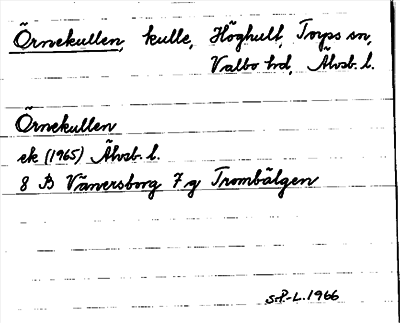 Örnekullen, kulle, Höghult, Torps sn,
Valbo hrd, Älvsb. l.
Örnekullen
ek (1965) Älvsb. l.
8 B Vänersborg 7 g Trombälgen
S.P-L. 1966